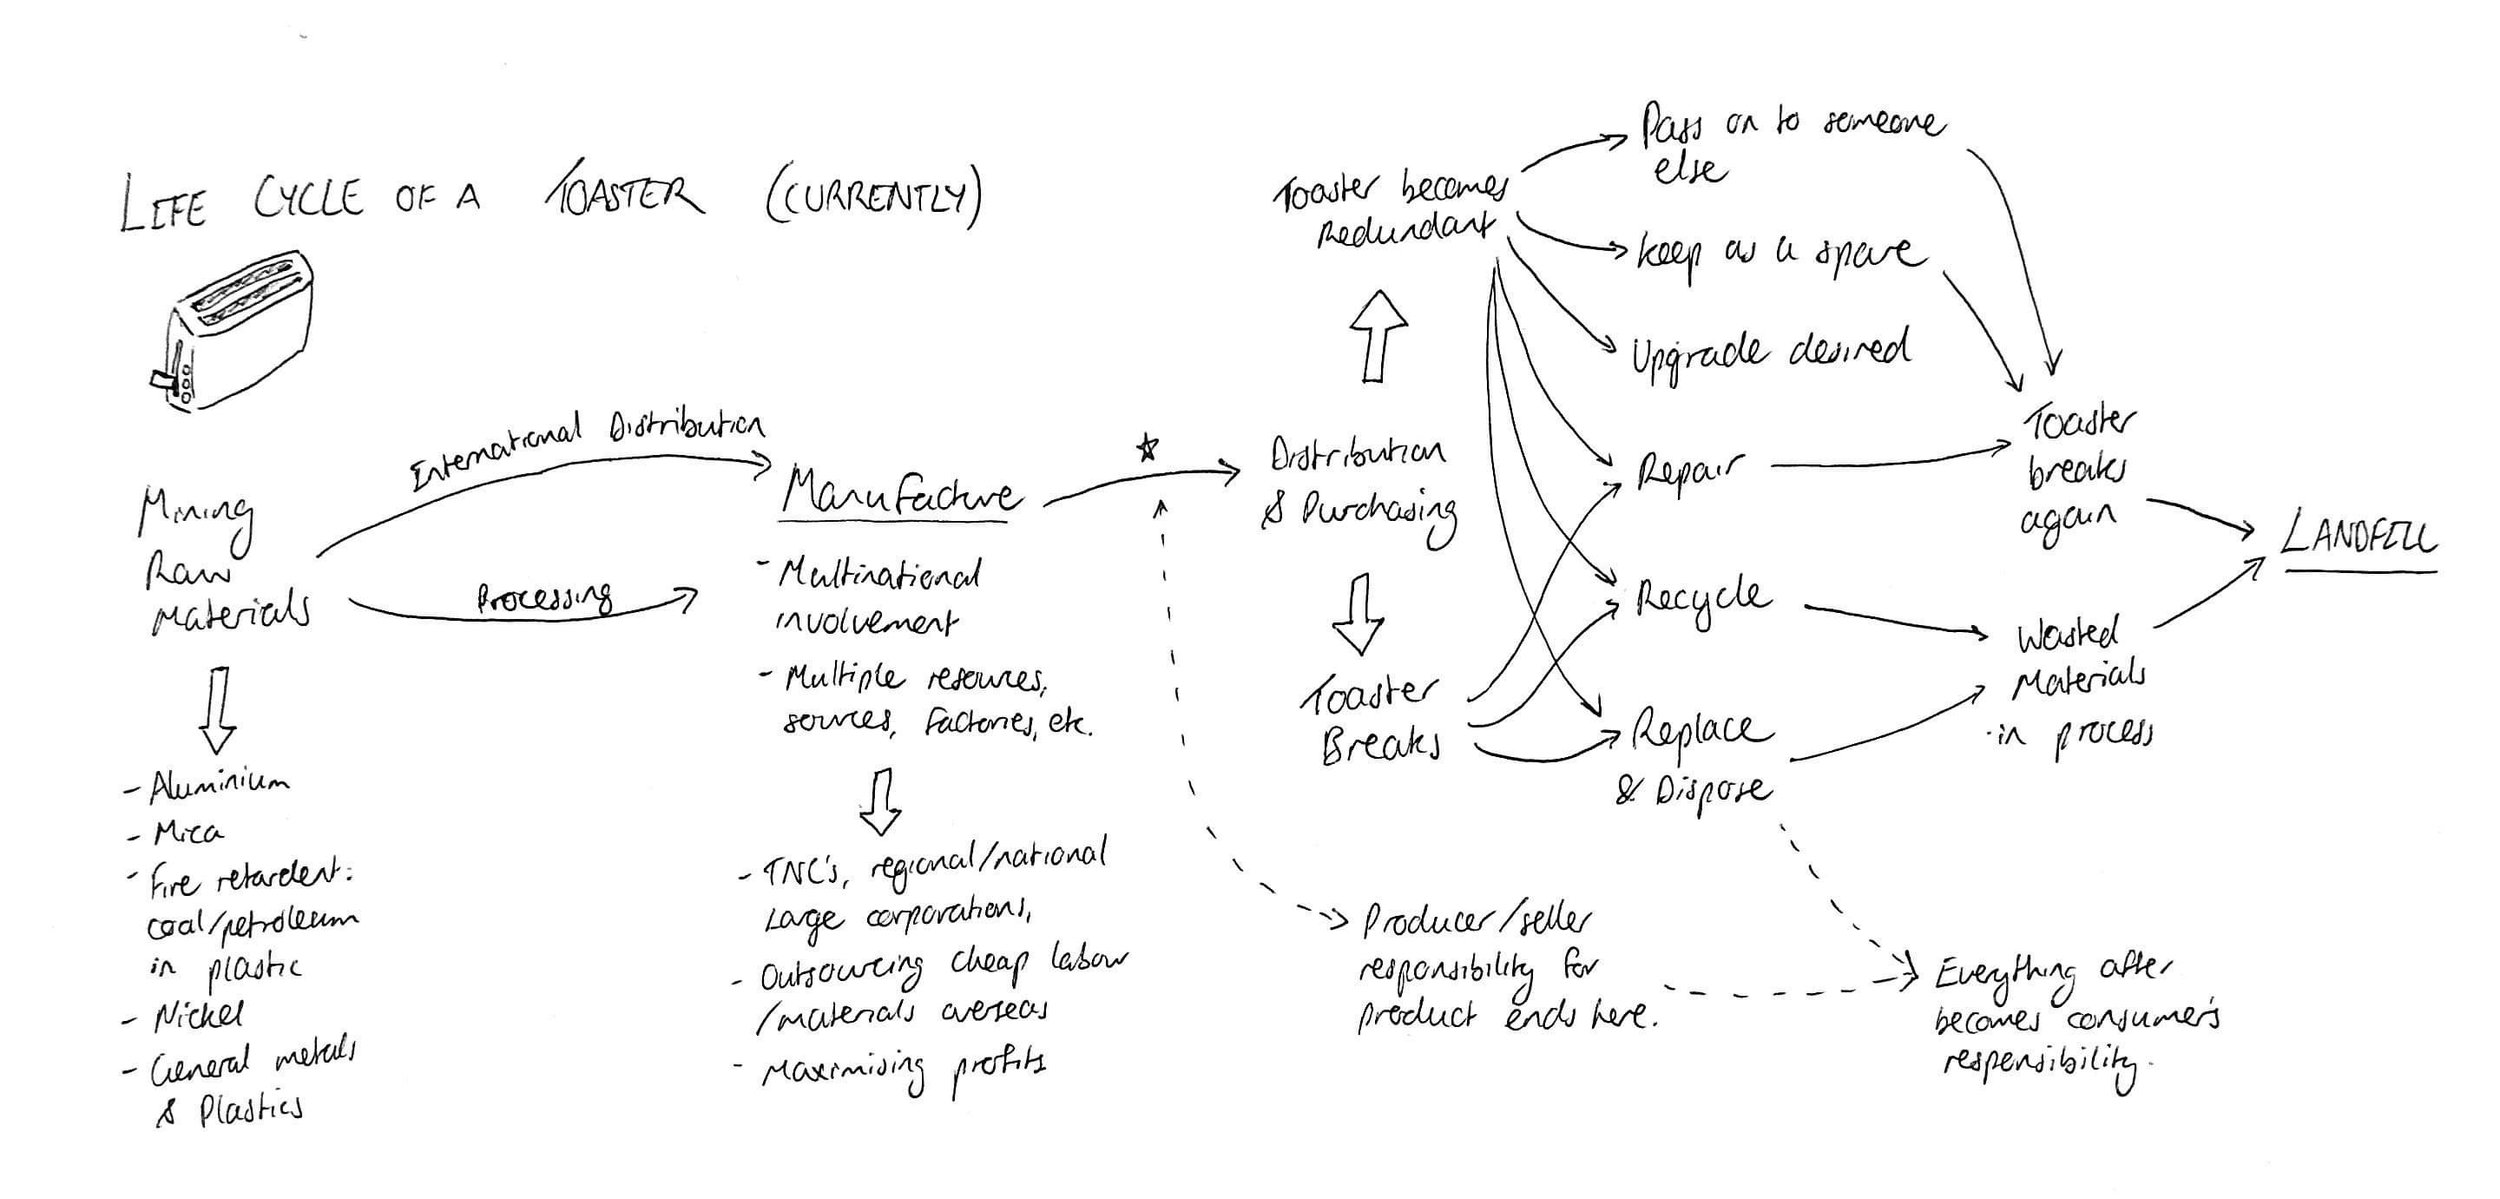 LIFE CYCLE OF A TOASTER (CURRENTLY)
International Distribution
Mining
Raw
Materials
Processing
- Aluminium
- Mica
- Fire retardent:
coal/petroleum
in plastic
- Nickel
- General metals
& Plastics
Manufacture
- Multinational
involvement
- Multiple resources,
sources, factories, etc.
- TNC's, regional/national
large corporations,
- Outsourcing cheap labour
/materials overseas
- Maximising profits
Toaster becomes
Redundant
Distribution
& Purchasing
Toaster
Breaks
Pass on to someone
else
keep as a spare
Upgrade desired
Repair
Recycle
Replace
& Dispose
Toaster
breaks
again
Wasted
Materials
in process
LANDFILL
Producer/seller
responsibility for
product ends here.
Everything after
becomes consumer's
responsibility.